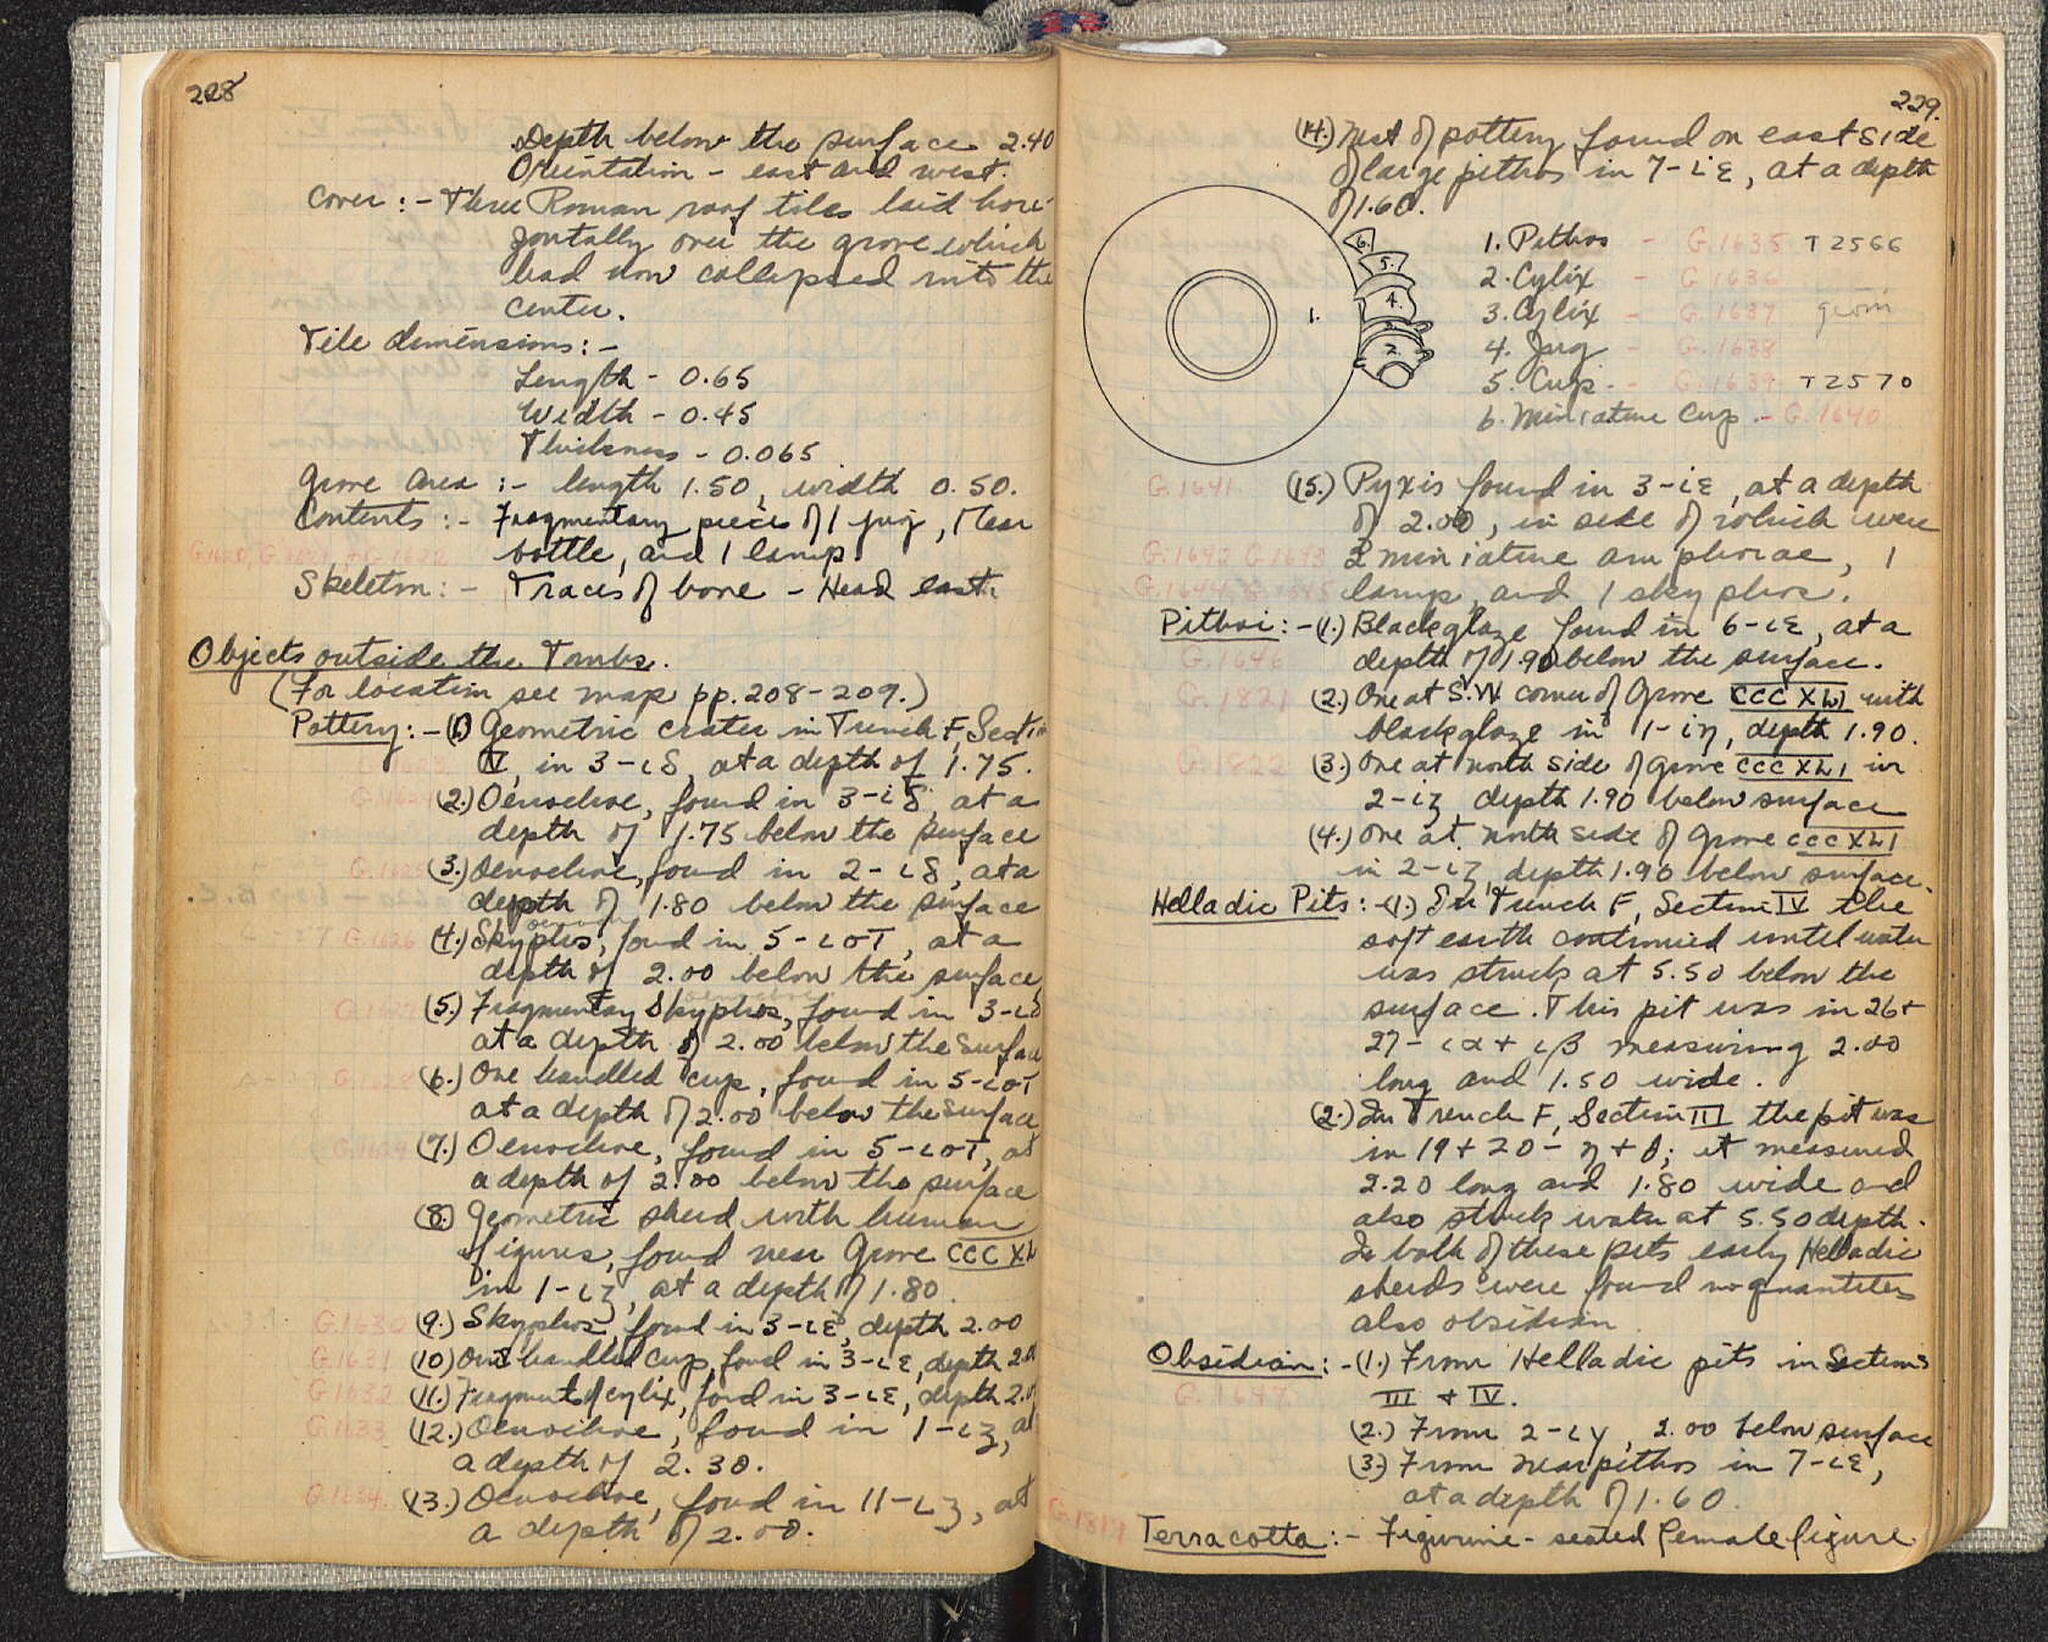 228
Depth below the surface 2.40
Orientation - east and west.
Cover :- Three Roman roof tiles laid hori-
zontally over the grave which
had now collapsed into the
center.
Tile dimensions :-
Length - 0.65
Width - 0.45
Thickness - 0.065
Grave Area :- length 1.50, width 0.50.
Contents :- Fragmentary pieces of 1 jug, 1 tear
G.1620, G.1621, + G.1622 bottle, and 1 lamp.
Skeleton :- Traces of bone - Head east.
Objects outside the Tombs.
(For location see map pp. 208-209.)
Pottery :- (1) Geometric crater in Trench F, Section
G.1623 IV, in 3-ιδ, at a depth of 1.75.
G.1624 (2.) Oenochoe, found in 3-ιδ, at a
depth of 1.75 below the surface
G.1625 (3.) Oenochoe, found in 2-ιδ, at a
depth of 1.80 below the surface
G.1626 (4.) Skyphos, found in 5-ιστ, at a
depth of 2.00 below the surface
G.1627 (5.) Fragmentary Skyphos, found in 3-ιδ
at a depth of 2.00 below the surface
G.1628 (6.) One handled cup, found in 5-ιστ
at a depth of 2.00 below the surface
G.1629 (7.) Oenochoe, found in 5-ιστ, at
a depth of 2.00 below the surface
(8.) Geometric sherd with human
figures, found near Grave CCCXL
in 1-ιζ, at a depth of 1.80.
G.1630 (9.) Skyphos, found in 3-ιε, depth 2.00
G.1631 (10) One handled cup, found in 3-ιε, depth 2.00
G.1632 (11.) Fragment of cylix, found in 3-ιε, depth 2.00
G.1633 (12.) Oenochoe, found in 1-ιζ, at
a depth of 2.30.
G.1634. (13.) Oenochoe, found in 11-ιζ, at
a depth of 2.00.
229.
(14.) Nest of pottery found on east side
of large pithos in 7-ιε, at a depth
of 1.60.
1. Pithos - G.1635 T2566
2. Cylix - G 1636
3. Cylix - G.1637 geom
4. Jug - G.1638
5. Cup. - G.1639 T2570
6. Miniature Cup - G.1640
6.
5.
4.
1.
3.
2.
G.1641. (15.) Pyxis found in 3-ιε, at a depth
of 2.00, in side of which were
G.1642 G.1643 2 miniature amphorae, 1
G.1644, G.1645 lamp, and 1 skyphos.
Pithoi :- (1.) Black glaze found in 6-ιε, at a
G.1646 depth of 1.90 below the surface.
G.1821 (2.) One at S.W. corner of Grave CCCXLI with
black glaze in 1-ιη, depth 1.90.
G.1822 (3.) One at north side of grave CCCXLI in
2-ιζ depth 1.90 below surface
(4.) One at north side of Grave CCCXLI
in 2-ιζ, depth 1.90 below surface.
Helladic Pits :- (1.) In Trench F, Section IV the
soft earth continued until water
was struck at 5.50 below the
surface. This pit was in 26+
27-ια+ιβ measuring 2.00
long and 1.50 wide.
(2.) In Trench F, Section III the pit was
in 19+20-η+θ; it measured
2.20 long and 1.80 wide and
also struck water at 5.50 depth.
In both of these pits early Helladic
sherds were found in quantities
also obsidian
Obsidian :- (1.) From Helladic pits in Sections
G.1647 III + IV.
(2.) From 2-ιγ, 2.00 below surface
(3.) From near pithos in 7-ιε,
at a depth of 1.60.
G.1817 Terracotta :- Figurine - seated female figure